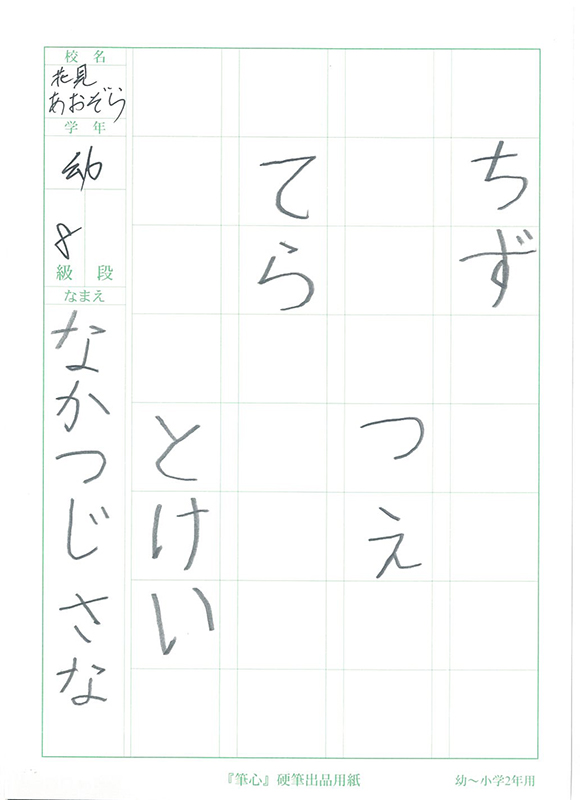 ちず
つえ
てら
とけい
校名
花見
あおぞら
学年
幼
8
級 段
なまえ
なかつじ さな
『筆心』硬筆出品用紙
幼〜小学2年用